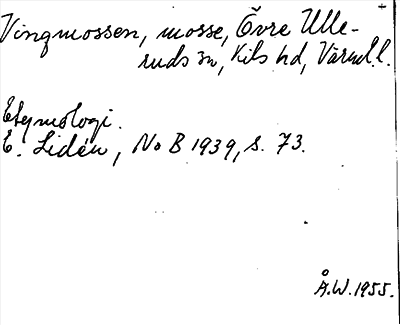 Vingmossen, mosse, Övre Ulle-
ruds sn, Kils hd, Värml. l.
Etymologi.
E. Lidén, NoB 1939, s. 73.
Å.W. 1955.